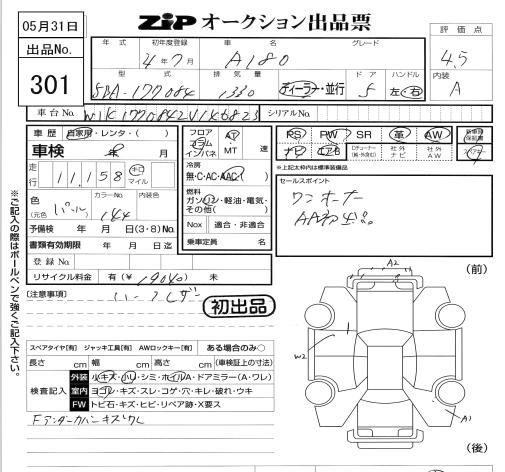 05月31日
出品No.
301
ZIP オークション出品票
評価点
4.5
内装
A
年式 初年度登録 車名 グレード
4年7月 A180
型式 排気量 ドア ハンドル
5BA-177084 1330 ディーラー・並行 5 左・右
車台No. W1K1770842V1K6823 シリアルNo.
車歴 自家用・レンタ・( )
車検 年 月
走行 11,158 キロ マイル
色 (元色 ) カラーNo. 内装色
パール 144
予備検 年 月 日(3・8)No.
書類有効期限 年 月 日迄
登録No.
リサイクル料金 有(¥19040) 未
フロア コラム インパネ AT MT 速
冷房
無・C・AC・AAC
燃料
ガソリン・軽油・電気・その他( )
Nox 適合・非適合
乗車定員 名
PS PW SR 革 AW 新車時保証書
ナビ エアB Dチューナー(純・外含む) 社外ナビ 社外AW
※上記太枠内は標準装備品
セールスポイント
ワンオーナー
AA初出品。
(注意事項)
ハーフレザー
初出品
※ご記入の際はボールペンで強くご記入下さい。
スペアタイヤ[有] ジャッキ工具[有] AWロックキー[有] ある場合のみ○
長さ cm 幅 cm 高さ cm (車検証上の寸法)
検査記入
外装 小キズ・小凹・シミ・ホイルA・ドアミラー(A・ワレ)
室内 ヨゴレ・キズ・スレ・コゲ・穴・キレ・破れ・ウキ
FW トビ石・キズ・ヒビ・リペア跡・X要ス
Fアンダーカバーキズワレ
(前)
A2
W2
A1
(後)